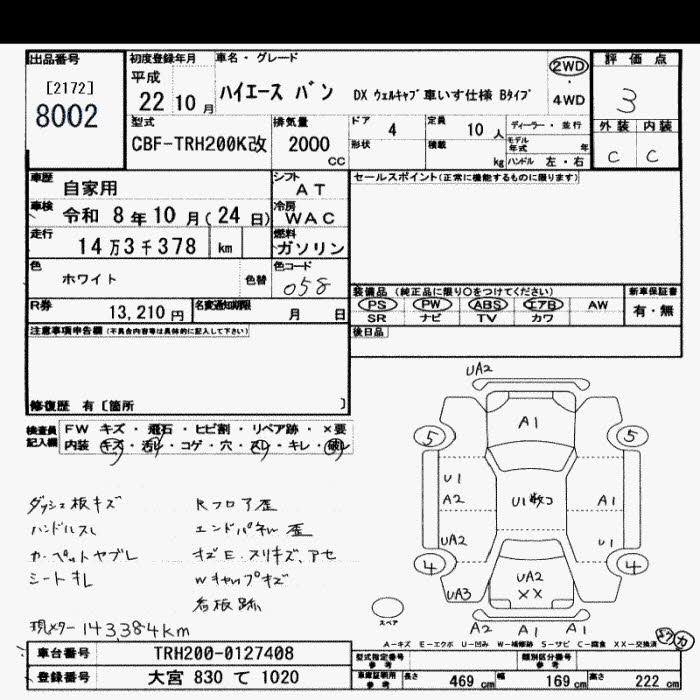 出品番号
[2172]
8002
初度登録年月
平成
22 10 月
車名・グレード
ハイエース バン DX ウェルキャブ 車いす仕様 Bタイプ
2WD
・
4WD
評価点
3
外装 内装
C C
型式
CBF-TRH200K改
排気量
2000
CC
ドア 4
定員 10 人
ディーラー・並行
形状
積載 kg
モデル年式 年
ハンドル 左・右
車歴 自家用
シフト AT
セールスポイント(正常に機能するものに限ります)
車検 令和 8 年 10 月(24 日)
冷房 WAC
走行 14 万 3 千 378 km
燃料 ガソリン
色 ホワイト 色替
色コード 058
R券 13,210 円
名変通知期限 月 日
装備品 (純正品に限り○をつけてください)
PS PW ABS エアB AW
SR ナビ TV カワ
新車保証書
有・無
注意事項申告欄(不具合内容等は具体的に記入して下さい)
後日品
修復歴 有〔箇所 〕
検査員記入欄
FW キズ・飛石・ヒビ割・リペア跡・×要
内装 キズ・汚レ・コゲ・穴・スレ・キレ・破レ
ダッシュ板キズ
ハンドルスレ
カーペットヤブレ
シートキレ
Rフロア歪
エンドパネル歪
キズE・スリキズ、アセ
Wキャップキズ
看板跡
現メーター143,384km
UA2
A1
5 5
U1
A2
U1
A1
UA2
U1
4 4
UA2
XX
UA3
スペア
A2 A1 A1
A-キズ E-エクボ U-凹み W-補修跡 S-サビ C-腐食 XX-交換済
車台番号 TRH200-0127408
登録番号 大宮 830 て 1020
型式指定番号 参考
類別区分番号 参考
車庫証明用 参考
長さ 469 cm
幅 169 cm
高さ 222 cm